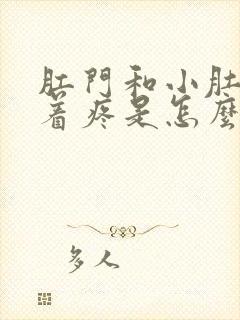 肛門和小肚
着疼是怎麼
多人